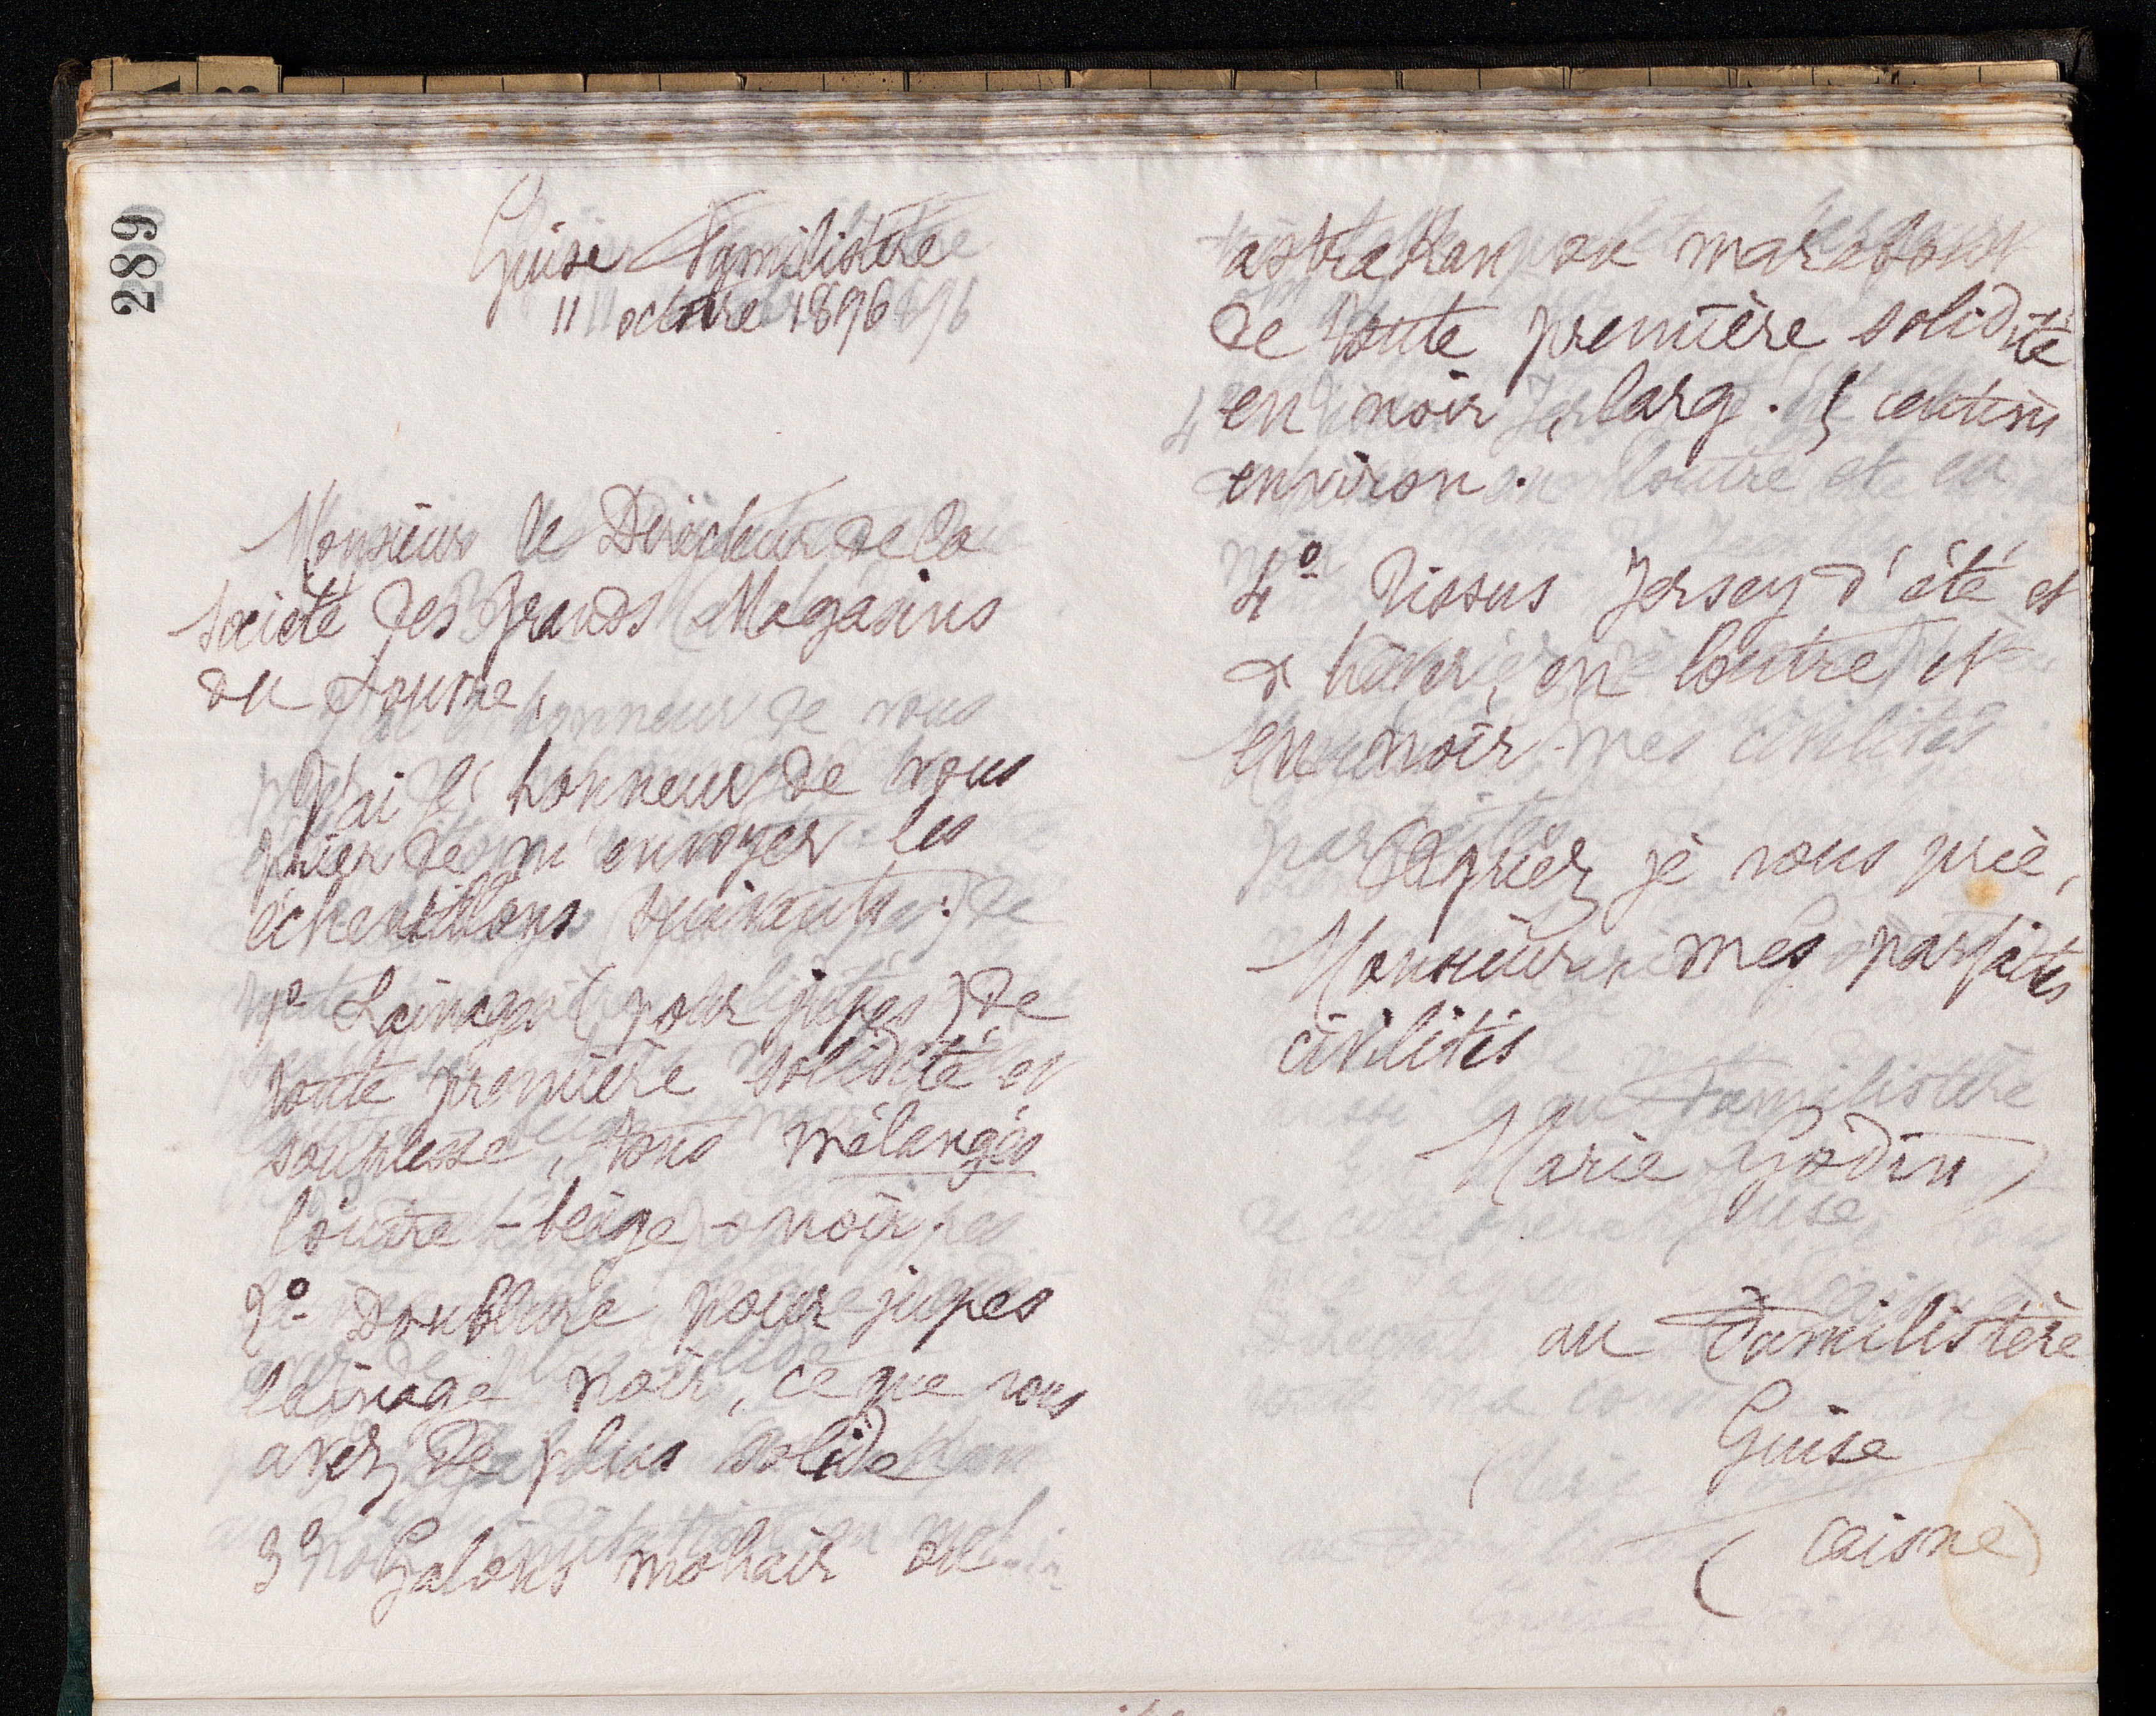 289
Guise Familistère
11 octobre 1896
Monsieur le Directeur de la
Société des Grands Magasins
du Louvre,
J'ai l'honneur de vous
prier de m'envoyer les
échantillons suivants :
1º Lainages (pour jupes) de
toute première solidité et
souplesse, tons mélangés
loutre - beige - noir.
2º Doublure pour jupes
lainage noir, ce que vous
avez de plus solide
3º Galons mohair ou
astrakan ou marabout
de toute première solidité
en noir, larg. centim
environ.
4º Tissus Jersey d'été et
d'hiver, en loutre et
en noir.
Agréez, je vous prie,
Monsieur mes parfaites
civilités
Marie Godin
au Familistère
Guise
(Aisne)